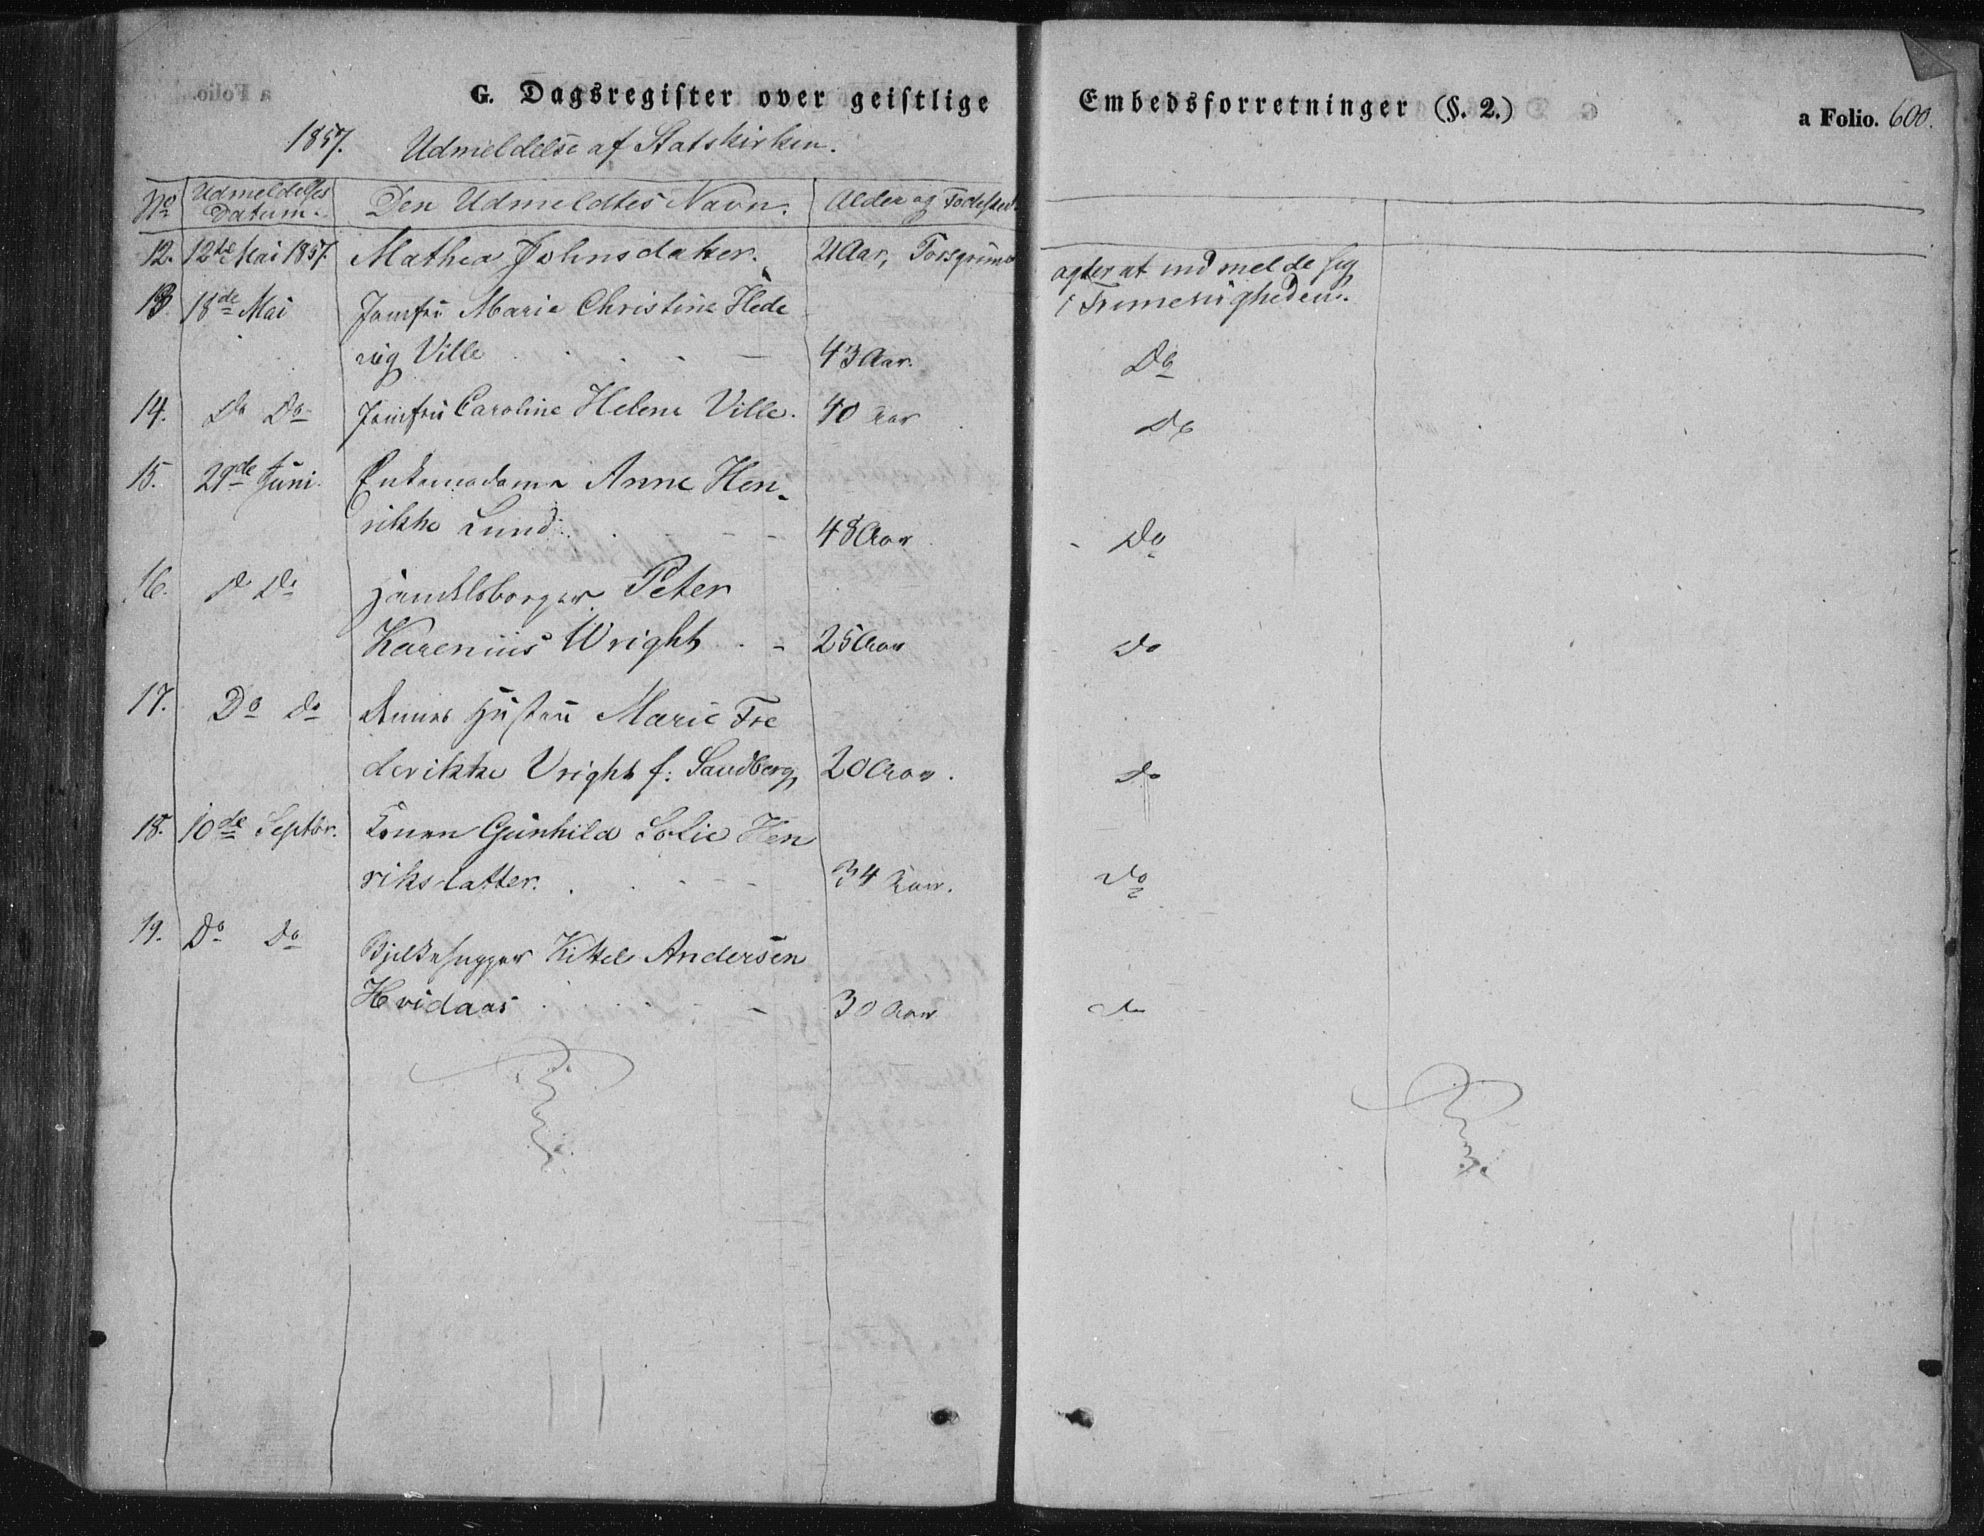 G. Dagsregister over geistlige Embedsforretninger (§. 2.) a Folio. 600.
1857. Udmeldelse af Statskirken.
No Udmeldelses Datum. Den Udmeldtes Navn. Alder og Fødested.
12. 12te Mai 1857. Mathea Johnsdaker. 21 Aar, Porsgrund agter at indmelde sig
i Frimenigheden.
13. 18de Mai Jomfru Marie Christine Hede
vig Ville 43 Aar. Do
14. Do Do Jomfru Caroline Helene Ville. 40 Aar Do
15. 29de Juni Enkemadame Anne Hen-
rikke Lund 48 Aar Do
16. Do Do Handelsborger Peter
Karenius Wright 25 Aar Do
17. Do Do Dennes Hustru Marie Fre
derikke Vright f. Sandberg 20 Aar. Do
18. 10de Septbr. Konen Gunhild Sofie Hen
riksdatter. 34 Aar. Do
19. Do Do Bjelkehugger Kittel Andersen
Hvidaas 30 Aar do